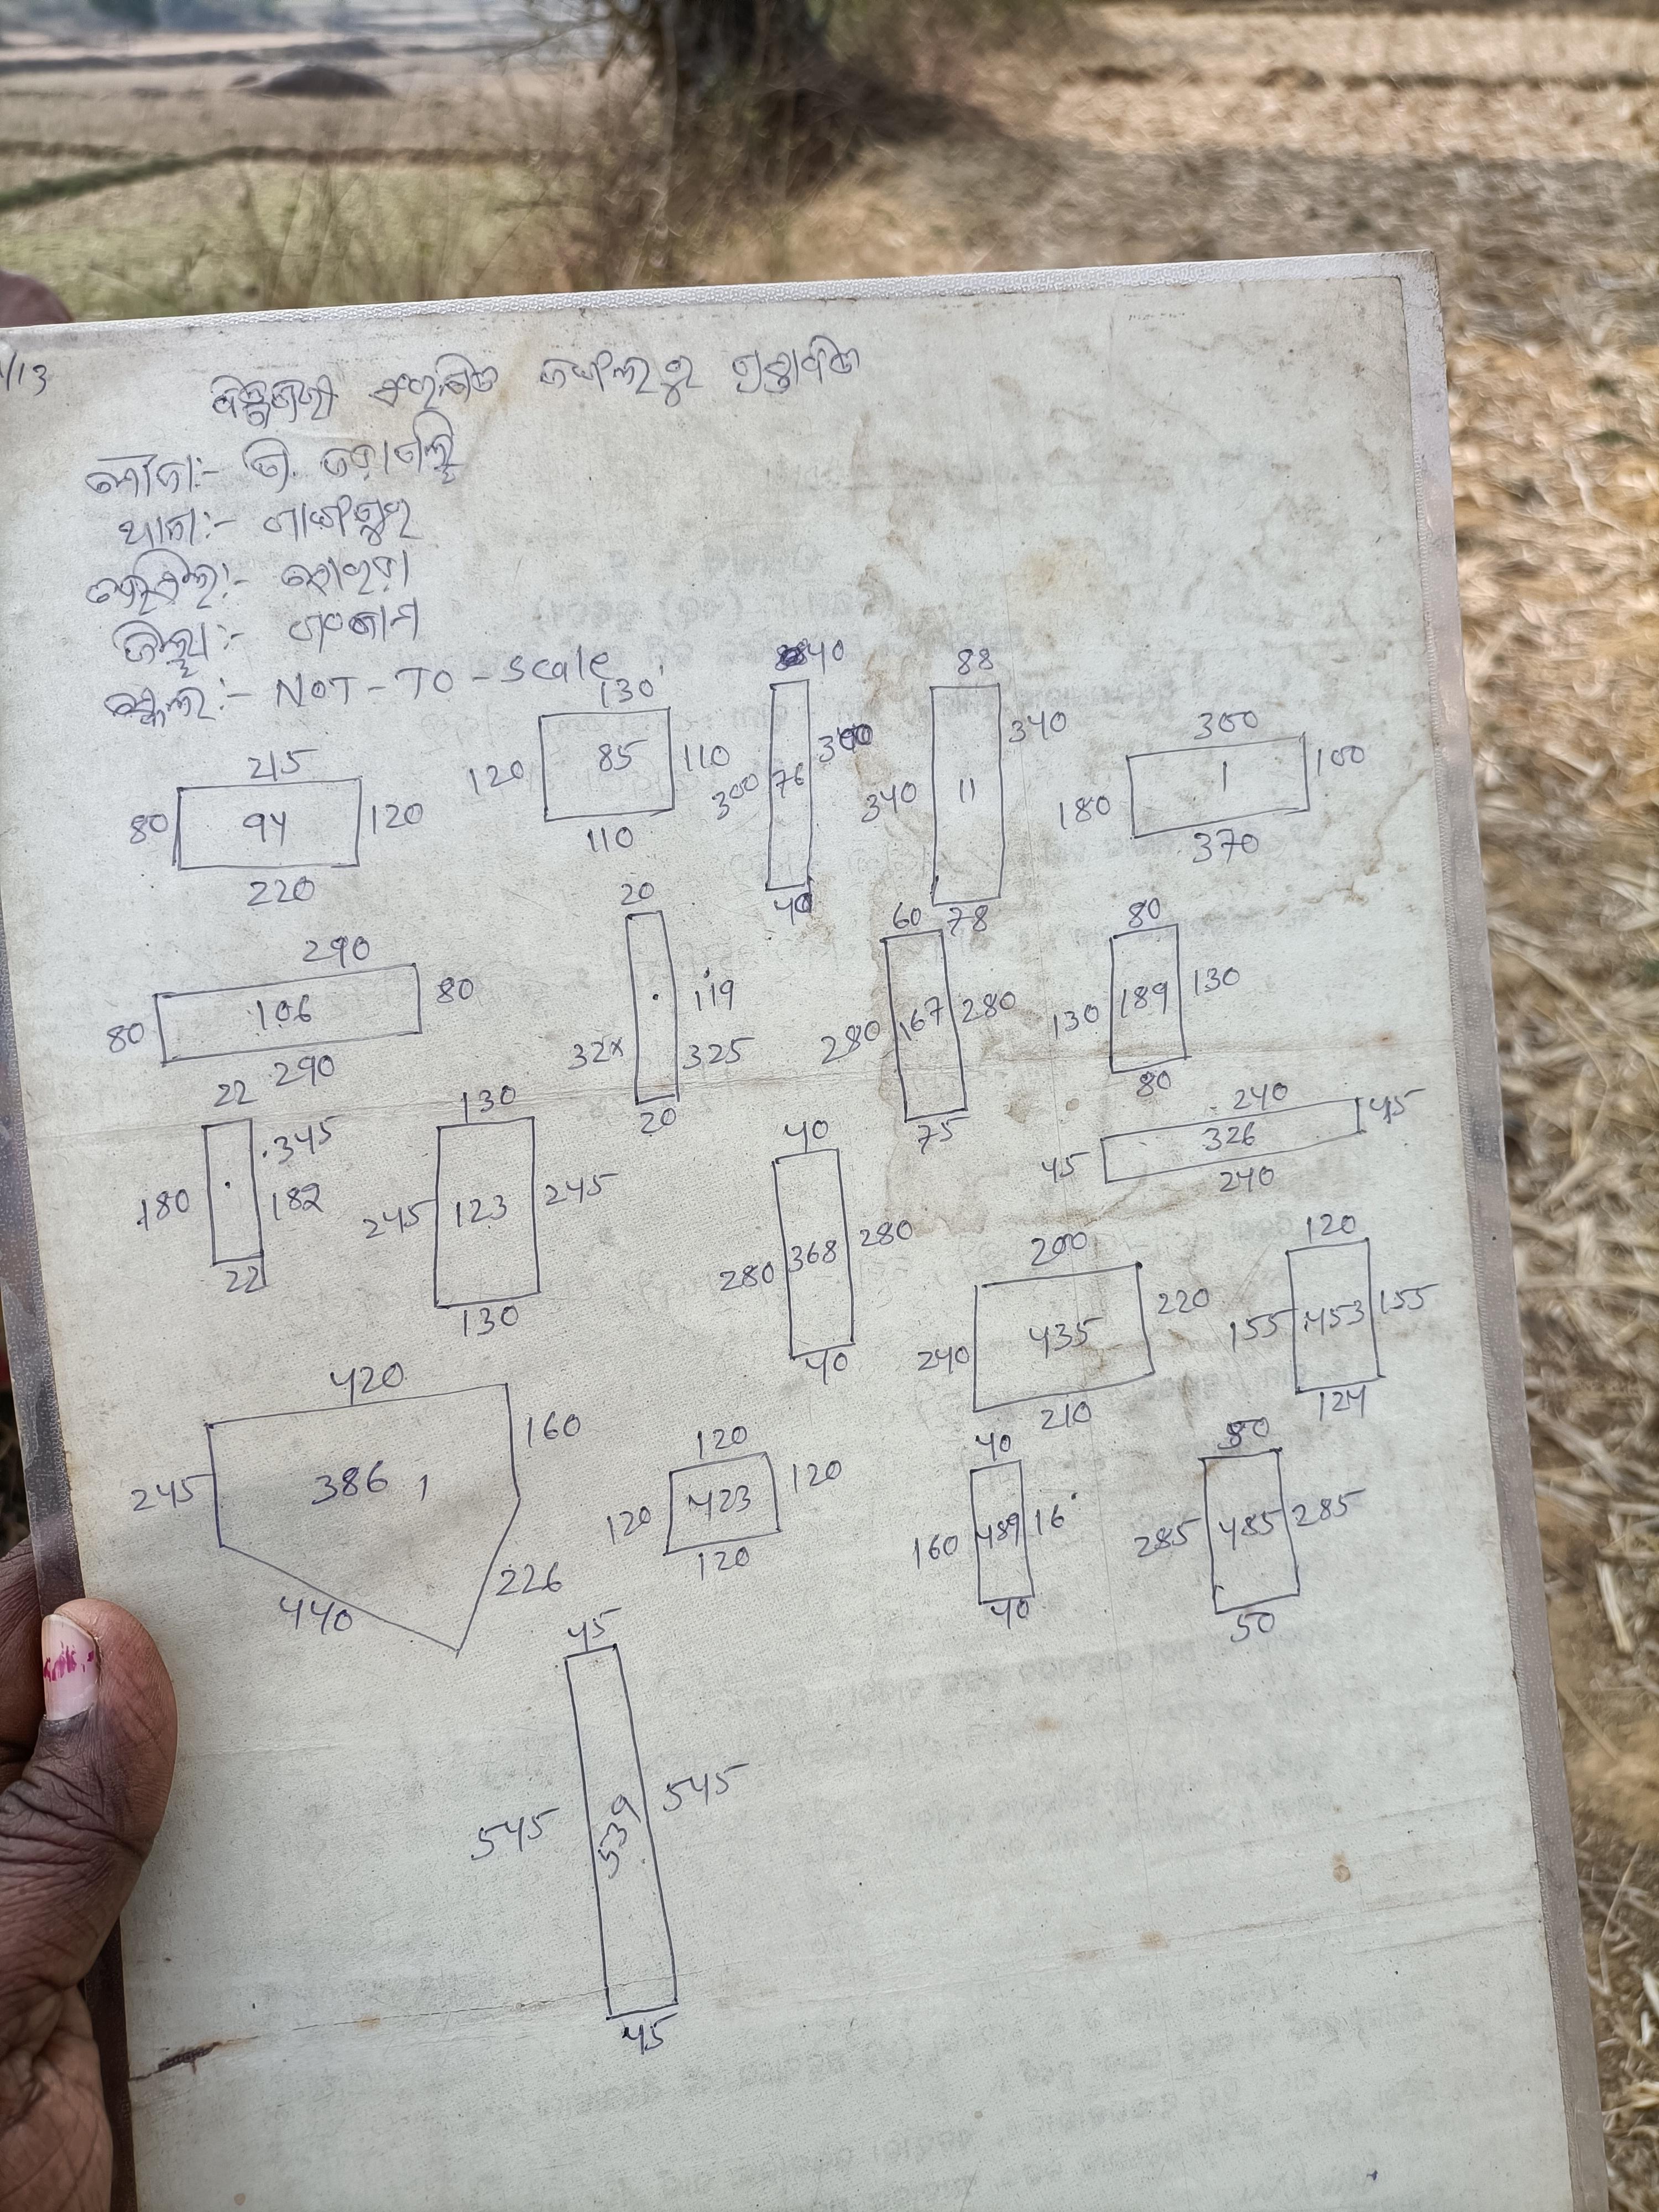 /13
ମୌଜା:- ଡି.
ଥାନା:-
ତହସିଲ:- ସୋରଡ଼ା
ଜିଲ୍ଲା:- ଗଂଜାମ
ସ୍କେଲ:- NOT - TO - scale
215
80 94 120
220
130
120 85 110
110
40
300 76
40
88
340 11 340
78
300
180 1 100
370
290
80 106 80
290
20
119
32x 325
20
60
280 167 280
75
80
130 189 130
80
22
345
180 182
22
130
245 123 245
130
40
280 368 280
40
240
45 326 45
240
200
240 435 220
210
120
155 453 155
124
420
245 386 , 160
440 226
120
120 423 120
120
40
160 489 16
40
285 485 285
50
45
545 539 545
45